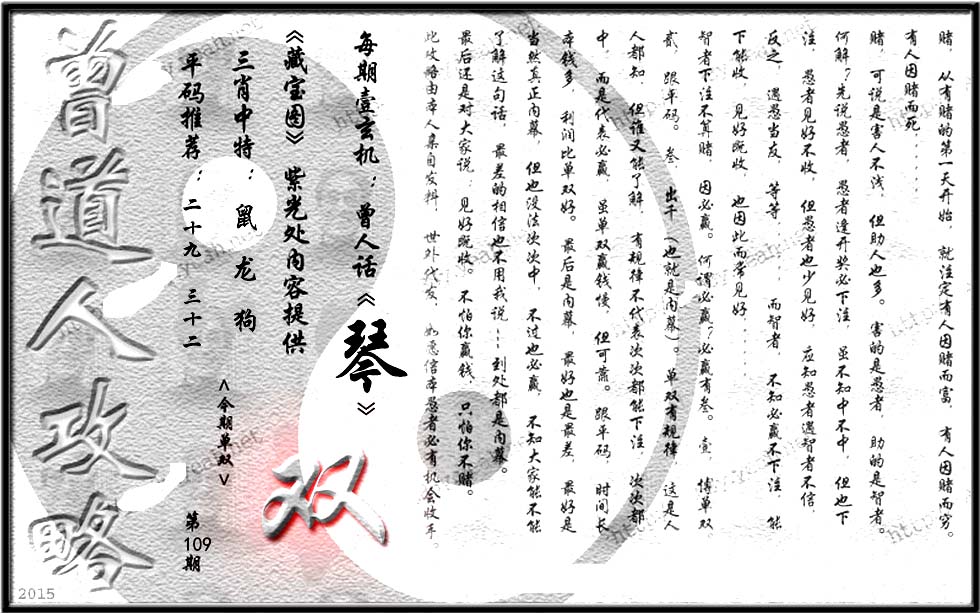 赌，从有赌的第一天开始，就注定有人因赌而富，有人因赌而穷。
有人因赌而死......
赌，可说是害人不浅，但助人也多。害的是愚者，助的是智者。
何解？先说愚者，愚者逢开奖必下注，虽不知中不中，但也下
注，愚者见好不收，但愚者也少见好，应知愚者遇智者不信，
反之，遇愚当友，等等......而智者，不知必赢不下注，能
下能收，见好既收，也因此而常见好......
智者下注不算赌，因必赢。何谓必赢？必赢有叁。壹，博单双，
贰，跟平码。叁，出千（也就是内幕）。单双有规律，这是人
人都知，但谁又能了解，有规律不代表次次都能下注，次次都
中，而是代表必赢，虽单双赢钱慢，但可靠。跟平码，时间长，
本钱多，利润比单双好。最后是内幕，最好也是最差，最好是
当然真正内幕，但也没法次次中，不过也必赢，不知大家能不能
了解这句话，最差的相信也不用我说——到处都是内幕。
最后还是对大家说：见好既收。不怕你赢钱，只怕你不赌。
此攻略由本人亲自发料，世外代友，如愿信本愚者必有机会收车。
每期壹玄机：曾人话《琴》
《藏宝图》紫光处内容提供
三肖中特：鼠 龙 狗
平码推荐：二十九 三十二
<今期单双>
双
第109期
曾道人攻略
2015